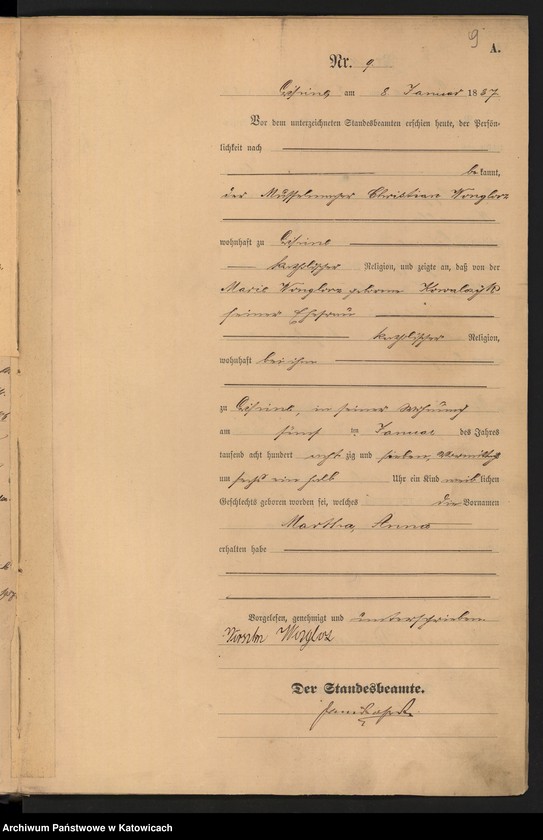 9
A.
Nr. 9
am 8 Januar 1887
Vor dem unterzeichneten Standesbeamten erschien heute, der Persön-
lichkeit nach
bekannt,
der Christian
wohnhaft zu
katholischer Religion, und zeigte an, daß von der
Marie geborene Kowalczyk
seiner Ehefrau
katholischer Religion,
wohnhaft bei ihm
zu in seiner Wohnung
am fünf ten Januar des Jahres
tausend acht hundert acht zig und sieben, Vormittags
um sechs ein halb Uhr ein Kind weiblichen
Geschlechts geboren worden sei, welches die Vornamen
Martha, Anna
erhalten habe
Vorgelesen, genehmigt und unterschrieben
Der Standesbeamte.
Archiwum Państwowe w Katowicach